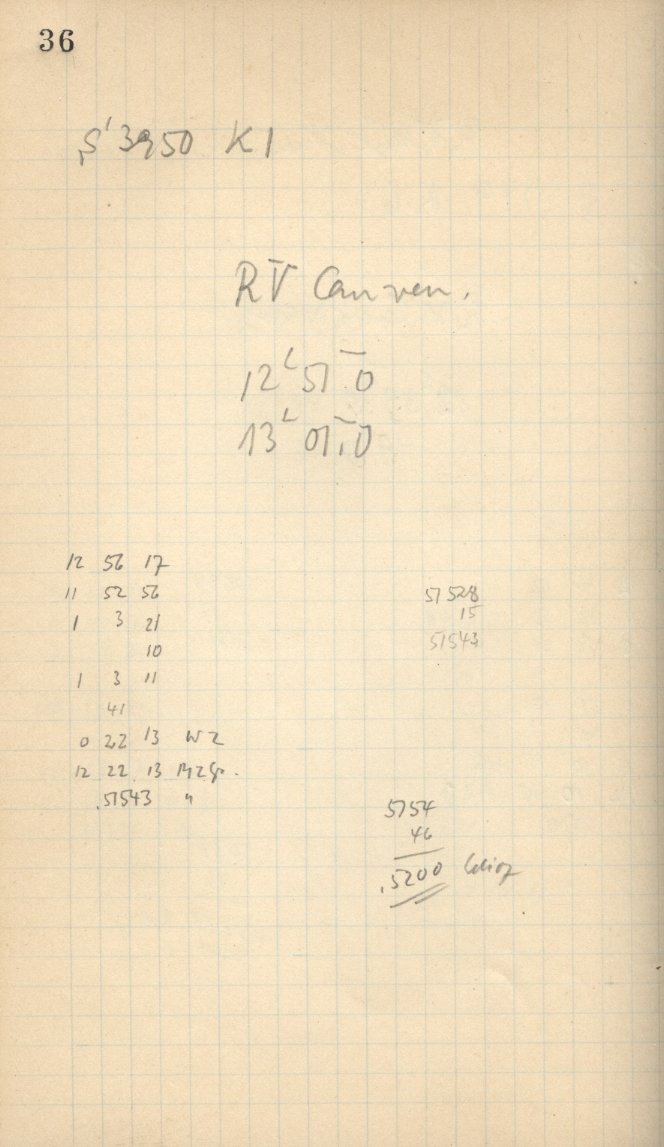 36
S' 3950 K1
RV Can ven.
12ʰ 51ᵐ.0
13ʰ 01ᵐ.0
12 56 17
11 52 56
1 3 21
10
1 3 11
41
0 22 13 WZ
12 22 13 MZGr.
.51543 "
51528
15
51543
5154
46
.5200